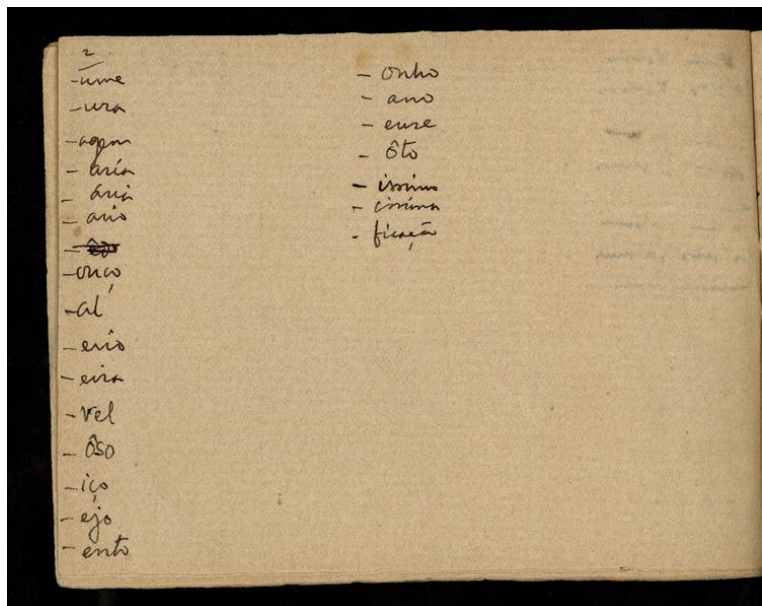 2
-ume
-ura
-agem
- aría
- ária
- ario
-onço
-al
- erio
- eira
- vel
- ôso
- iço
- ejo
- ento
- onho
- ano
- ense
- ôto
- issimo
- issima
- ficação